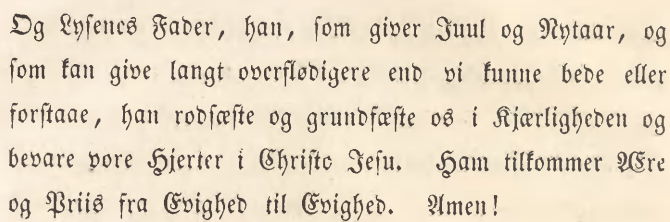 Og Lysenes Fader, han, som giver Juul og Nytaar, og
som kan give langt overflødigere end vi kunne bede eller
forstaae, han rodfæste og grundfæste os i Kjærligheden og
bevare vore Hjerter i Christo Jesu. Ham tilkommer Ære
og Priis fra Evighed til Evighed. Amen!